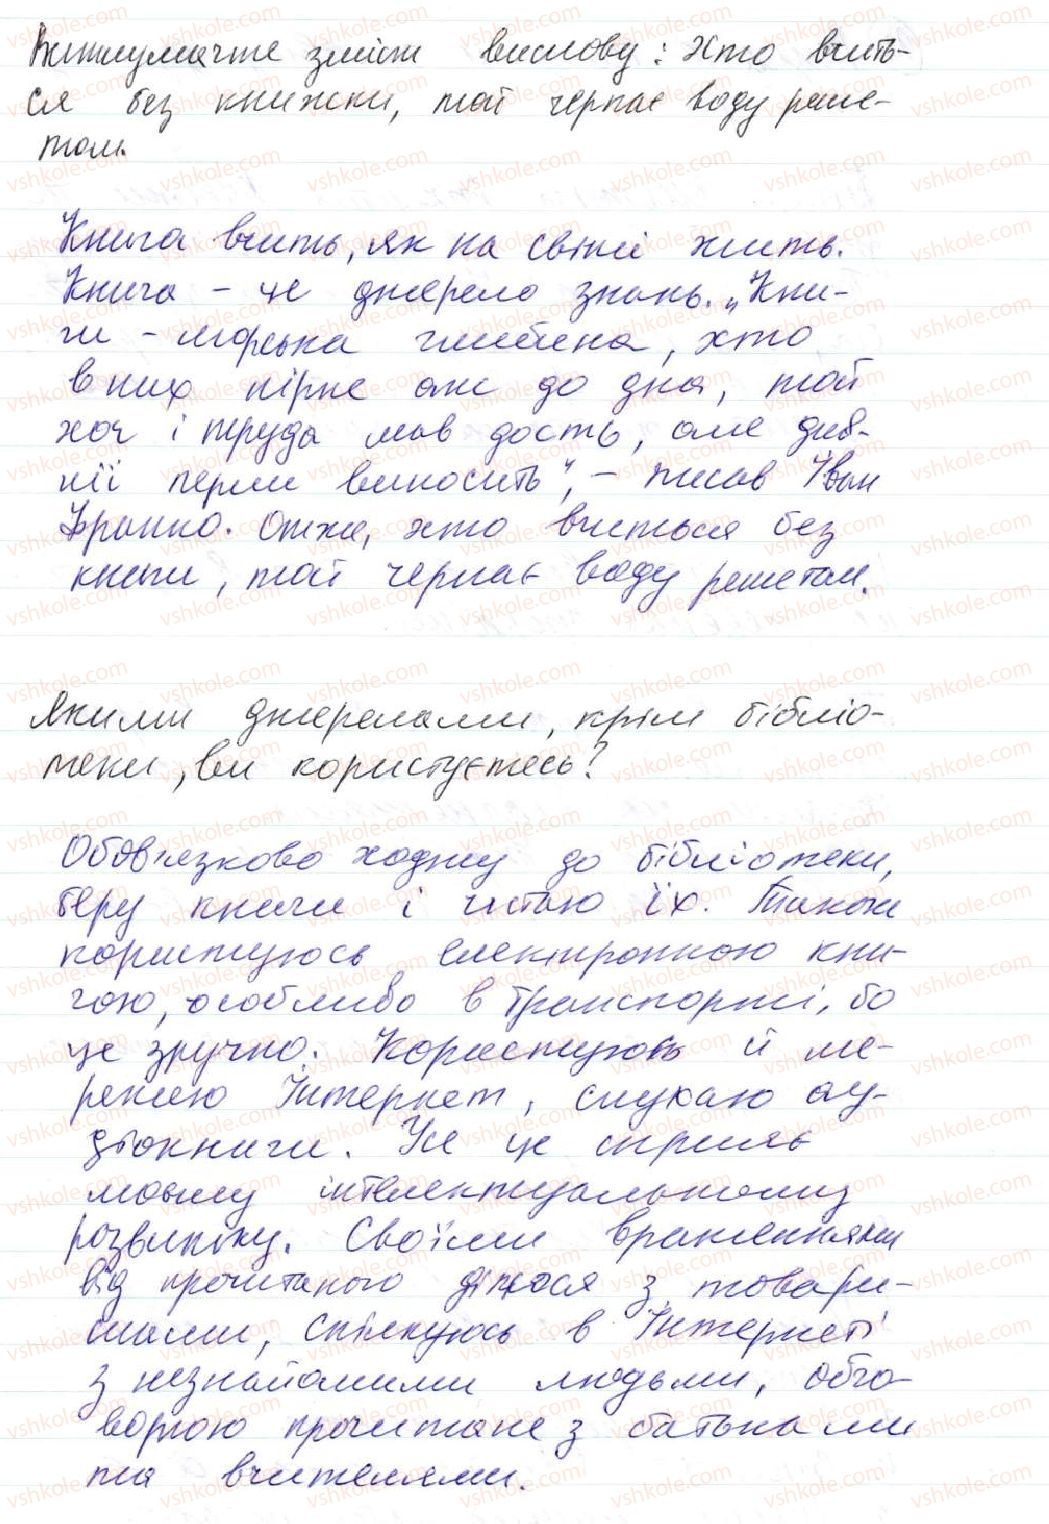 Витлумачте зміст вислову: Хто вчить-
ся без книжки, той черпає воду реше-
том.
Книга вчить, як на світі жить.
Книга – це джерело знань. „Кни-
ги – морська глибина, хто
в них пірне аж до дна, той
хоч і труда мав досить, але див-
нії перли виносить", – писав Іван
Франко. Отже, хто вчиться без
книги, той черпає воду решетом.
Якими джерелами, крім бібліо-
теки, ви користуєтесь?
Обов'язково ходжу до бібліотеки,
беру книги і читаю їх. Також
користуюсь електронною кни-
гою, особливо в транспорті, бо
це зручно. Користуюсь й ме-
режею Інтернет, слухаю ау-
діокниги. Усе це сприяє
моєму інтелектуальному
розвитку. Своїми враженнями
від прочитаного ділюся з товари-
шами, спілкуюсь в Інтернеті
з незнайомими людьми, обго-
ворюю прочитане з батьками
та вчителями.